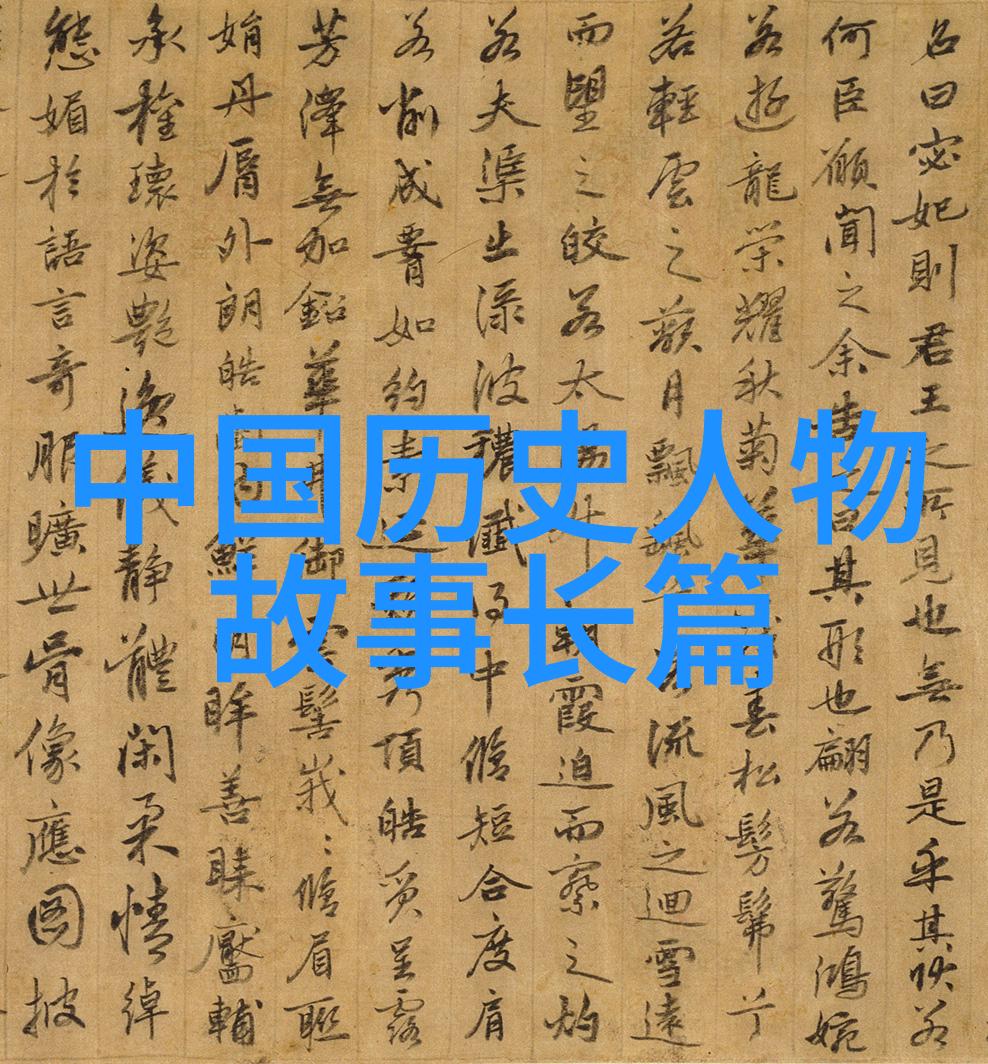 中国历史人物
故事长篇
名曰宓妃則君王之所見也無乃是乎其狀若
何臣願聞之余告之曰其形也翩若驚鴻婉
若遊龍榮耀秋菊華茂春松髣髴兮
若輕雲之蔽月飄颻兮若流風之迴雪遠
而望之皎若太陽升朝霞迫而察之灼
若夫渠出淥波穠纖得中脩短合度肩
若削成要如約素延頸秀項皓質呈露
芳澤無加鉛華弗御雲髻峩〻脩眉聯
娟丹脣外朗皓齒內鮮明眸善睞靨輔
承權瓌姿艷逸儀靜體閑柔情綽
態媚於語言奇服曠世骨像應圖披